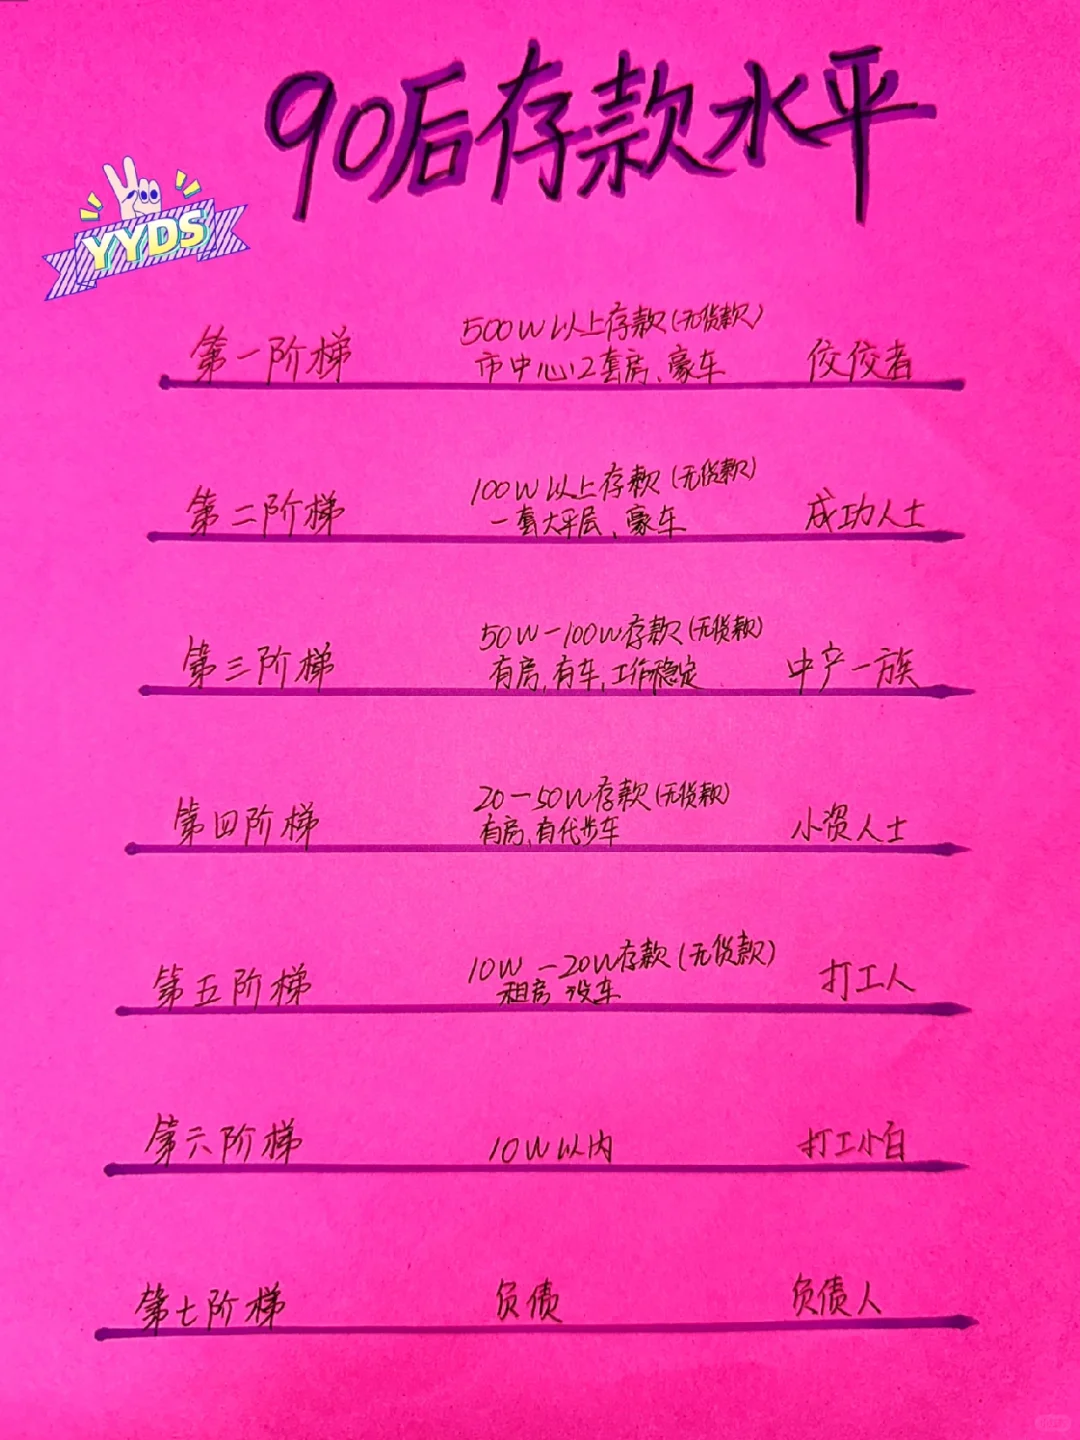 90后存款水平
YYDS
第一阶梯
500W以上存款(无贷款)
市中心2套房、豪车
佼佼者
第二阶梯
100W以上存款(无贷款)
一套大平层、豪车
成功人士
第三阶梯
50W-100W存款(无贷款)
有房,有车,工作稳定
中产一族
第四阶梯
20-50W存款(无贷款)
有房,有代步车
小资人士
第五阶梯
10W-20W存款(无贷款)
租房 没车
打工人
第六阶梯
10W以内
打工小白
第七阶梯
负债
负债人